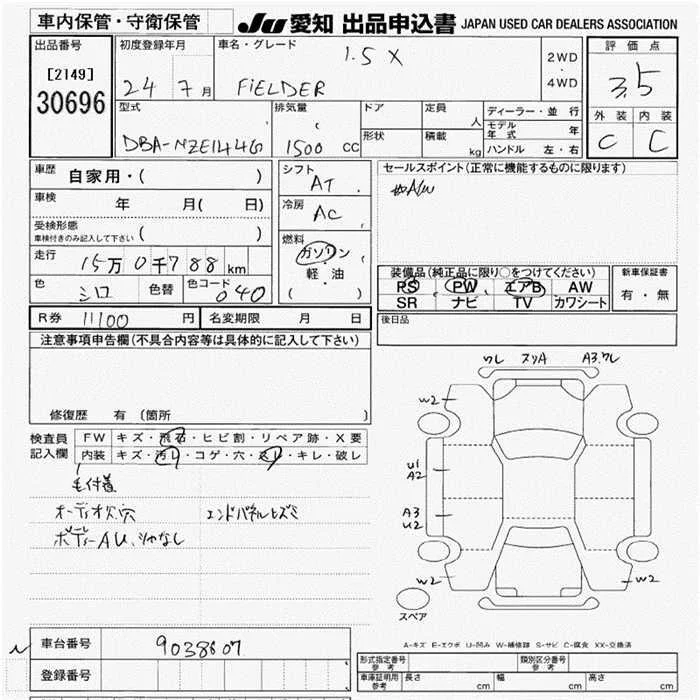 車内保管・守衛保管
JU 愛知 出品申込書 JAPAN USED CAR DEALERS ASSOCIATION
出品番号
[2149]
30696
初度登録年月
24 7月
車名・グレード
1.5 X
FIELDER
2WD
・
4WD
評価点
3.5
外装 内装
C C
型式
DBA-NZE144G
排気量
1500 cc
ドア
形状
定員 人
積載 kg
ディーラー・並行
モデル年式 年
ハンドル 左・右
車歴 自家用・( )
車検 年 月( 日)
受検形態
車検付きのみ記入して下さい ( )
走行 15万0千788km
色 シロ
色替
色コード 040
シフト
AT
冷房
AC
燃料
ガソリン
・
軽・油
( )
セールスポイント(正常に機能するものに限ります)
装備品(純正品に限り○をつけてください)
PS PW エアB AW
SR ナビ TV カワシート
新車保証書
有・無
後日品
R券 11100 円
名変期限 月 日
注意事項申告欄(不具合内容等は具体的に記入して下さい)
修復歴 有(箇所 )
検査員
記入欄
FW キズ・飛石・ヒビ割・リペア跡・X要
内装 キズ・汚レ・コゲ・穴・スレ・キレ・破レ
毛付着
オーディオ欠、穴
エンドパネルヒズミ
ボデーAU、
ワレ スリA A3.ワレ
W2
U1
A2
A3
U2
W2
W2
W2
スペア
A-キズ E-エクボ U-凹み W-補修跡 S-サビ C-腐食 XX-交換済
車台番号 9038607
登録番号
形式指定番号
参考
類別区分番号
参考
車庫証明用
参考
長さ cm 幅 cm 高さ cm